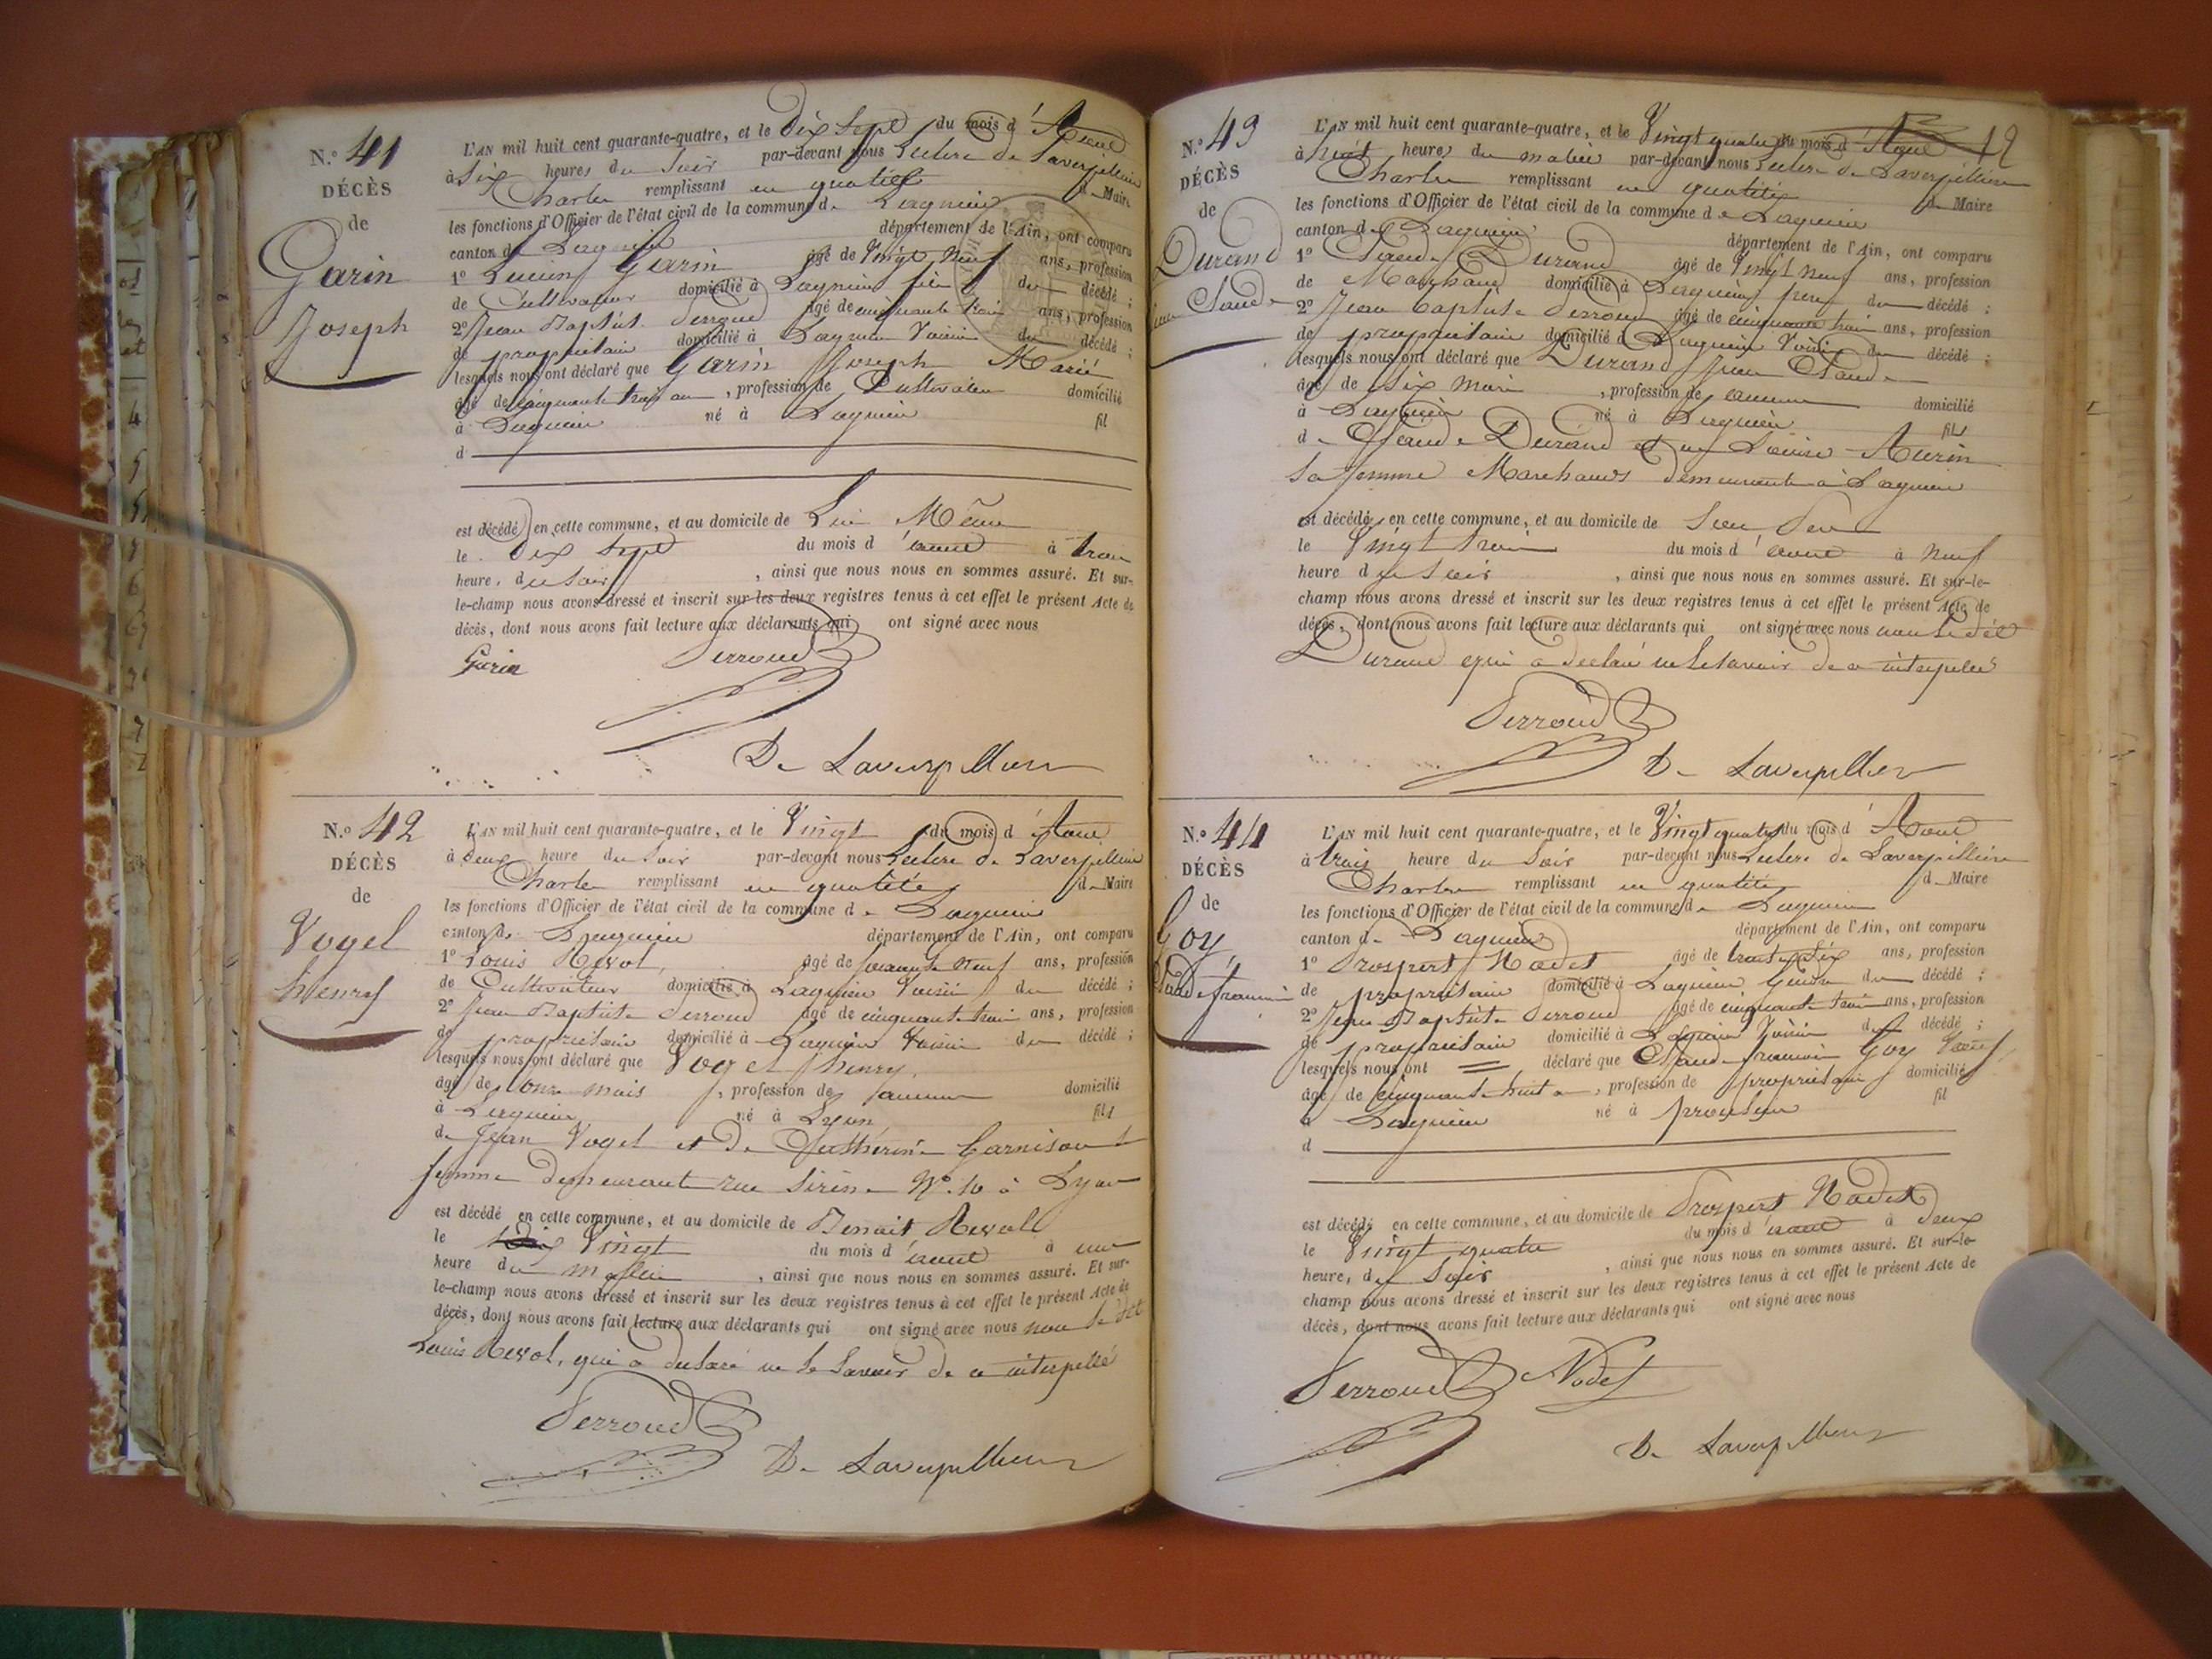 N.º 41
DÉCÈS
de
Garin
Joseph
L'AN mil huit cent quarante-quatre, et le Dix Sept du mois d'Aout
à Six heures du Soir par-devant nous Leclere de Laverpilliere
Charles remplissant en qualité de Maire
les fonctions d'Officier de l'état civil de la commune de Lagnieu
canton de Lagnieu département de l'Ain, ont comparu
1º Lucien Garin âgé de Vingt Neuf ans, profession
de Cultivateur domicilié à Lagnieu fils du décédé ;
2º Jean Baptiste Perroud âgé de cinquante trois ans, profession
de propriétaire domicilié à Lagnieu Voisin du décédé ;
lesquels nous ont déclaré que Garin Joseph Marié
âgé de cinquante trois ans, profession de Cultivateur domicilié
à Lagnieu né à Lagnieu fil
d
est décédé en cette commune, et au domicile de Lui Même
le Dix Sept du mois d'aout à trois
heure, du Soir, ainsi que nous nous en sommes assuré. Et sur-
le-champ nous avons dressé et inscrit sur les deux registres tenus à cet effet le présent Acte de
décès, dont nous avons fait lecture aux déclarants qui ont signé avec nous
Garin Perroud
De Laverpilliere
N.º 42
DÉCÈS
de
Vogel
henry
L'AN mil huit cent quarante-quatre, et le Vingt du mois d'Aout
à deux heure du Soir par-devant nous Leclere de Laverpilliere
Charles remplissant en qualité de Maire
les fonctions d'Officier de l'état civil de la commune de Lagnieu
canton de Lagnieu département de l'Ain, ont comparu
1º Louis Revol, âgé de Neuf ans, profession
de Cultivateur domicilié à Lagnieu Voisin du décédé ;
2º Jean Baptiste Perroud âgé de cinquante trois ans, profession
de propriétaire domicilié à Lagnieu Voisin du décédé ;
lesquels nous ont déclaré que Vogel henry
âgé de onze mois, profession de aucune domicilié
à Lagnieu né à Lyon fils
de Jean Vogel et De Catherine Garnison
femme demeurant rue Sirène Nº. 10 à Lyon
est décédé en cette commune, et au domicile de Benoit Revol
le Vingt du mois d'aout à une
heure du matin, ainsi que nous nous en sommes assuré. Et sur-
le-champ nous avons dressé et inscrit sur les deux registres tenus à cet effet le présent Acte de
décès, dont nous avons fait lecture aux déclarants qui ont signé avec nous non le dit
Louis Revol, qui a déclaré ne le Savoir de ce interpellé
Perroud
De Laverpilliere
12
N.º 43
DÉCÈS
de
Durand
Claude
L'AN mil huit cent quarante-quatre, et le Vingt quatre du mois d'Aout
à huit heures du matin par-devant nous Leclere de Laverpilliere
Charles remplissant en qualité de Maire
les fonctions d'Officier de l'état civil de la commune de Lagnieu
canton de Lagnieu département de l'Ain, ont comparu
1º Claude Durand âgé de Vingt Neuf ans, profession
de Marchand domicilié à Lagnieu père du décédé ;
2º Jean Baptiste Perroud âgé de cinquante trois ans, profession
de propriétaire domicilié à Lagnieu Voisin du décédé ;
lesquels nous ont déclaré que Durand Jean Claude
âgé de Six Mois, profession de aucune domicilié
à Lagnieu né à Lagnieu fils
de Claude Durand et de Louise Aurin
Sa femme Marchands demeurants à Lagnieu
est décédé en cette commune, et au domicile de Son Père
le Vingt trois du mois d'aout à Neuf
heure du Soir, ainsi que nous nous en sommes assuré. Et sur-le-
champ nous avons dressé et inscrit sur les deux registres tenus à cet effet le présent Acte de
décès, dont nous avons fait lecture aux déclarants qui ont signé avec nous non le dit
Durand qui a déclaré ne le Savoir de ce interpellé
Perroud
De Laverpilliere
N.º 44
DÉCÈS
de
Goy
Claude françois
L'AN mil huit cent quarante-quatre, et le Vingt quatre du mois d'Aout
à trois heure du Soir par-devant nous Leclere de Laverpilliere
Charles remplissant en qualité de Maire
les fonctions d'Officier de l'état civil de la commune de Lagnieu
canton de Lagnieu département de l'Ain, ont comparu
1º Prospert Nodet âgé de trente Six ans, profession
de propriétaire domicilié à Lagnieu Gendre du décédé ;
2º Jean Baptiste Perroud âgé de cinquante trois ans, profession
de propriétaire domicilié à Lagnieu Voisin du décédé ;
lesquels nous ont déclaré que Claude françois Goy Veuf
âgé de cinquante huit a, profession de propriétaire domicilié
à Lagnieu né à fil
d
est décédé en cette commune, et au domicile de Prospert Nodet
le Vingt quatre du mois d'aout à deux
heure, du Soir, ainsi que nous nous en sommes assuré. Et sur-le-
champ nous avons dressé et inscrit sur les deux registres tenus à cet effet le présent Acte de
décès, dont nous avons fait lecture aux déclarants qui ont signé avec nous
Perroud Nodet
De Laverpilliere